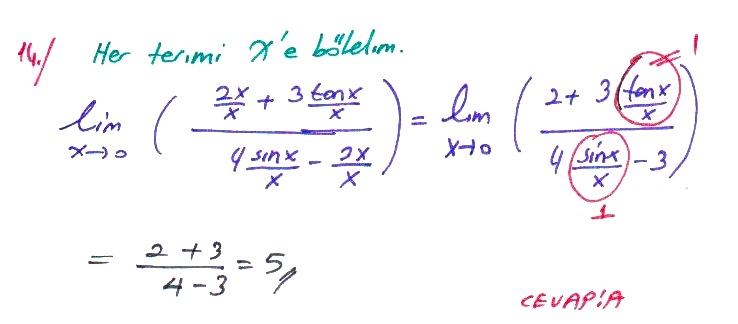 14./ Her terimi x'e bölelim.
lim x→0 ( (2x/x + 3 tanx/x) / (4 sinx/x - 3x/x) ) = lim x→0 ( (2 + 3 tanx/x) / (4 sinx/x - 3) ) 1 1
= (2 + 3) / (4 - 3) = 5//
CEVAP:A